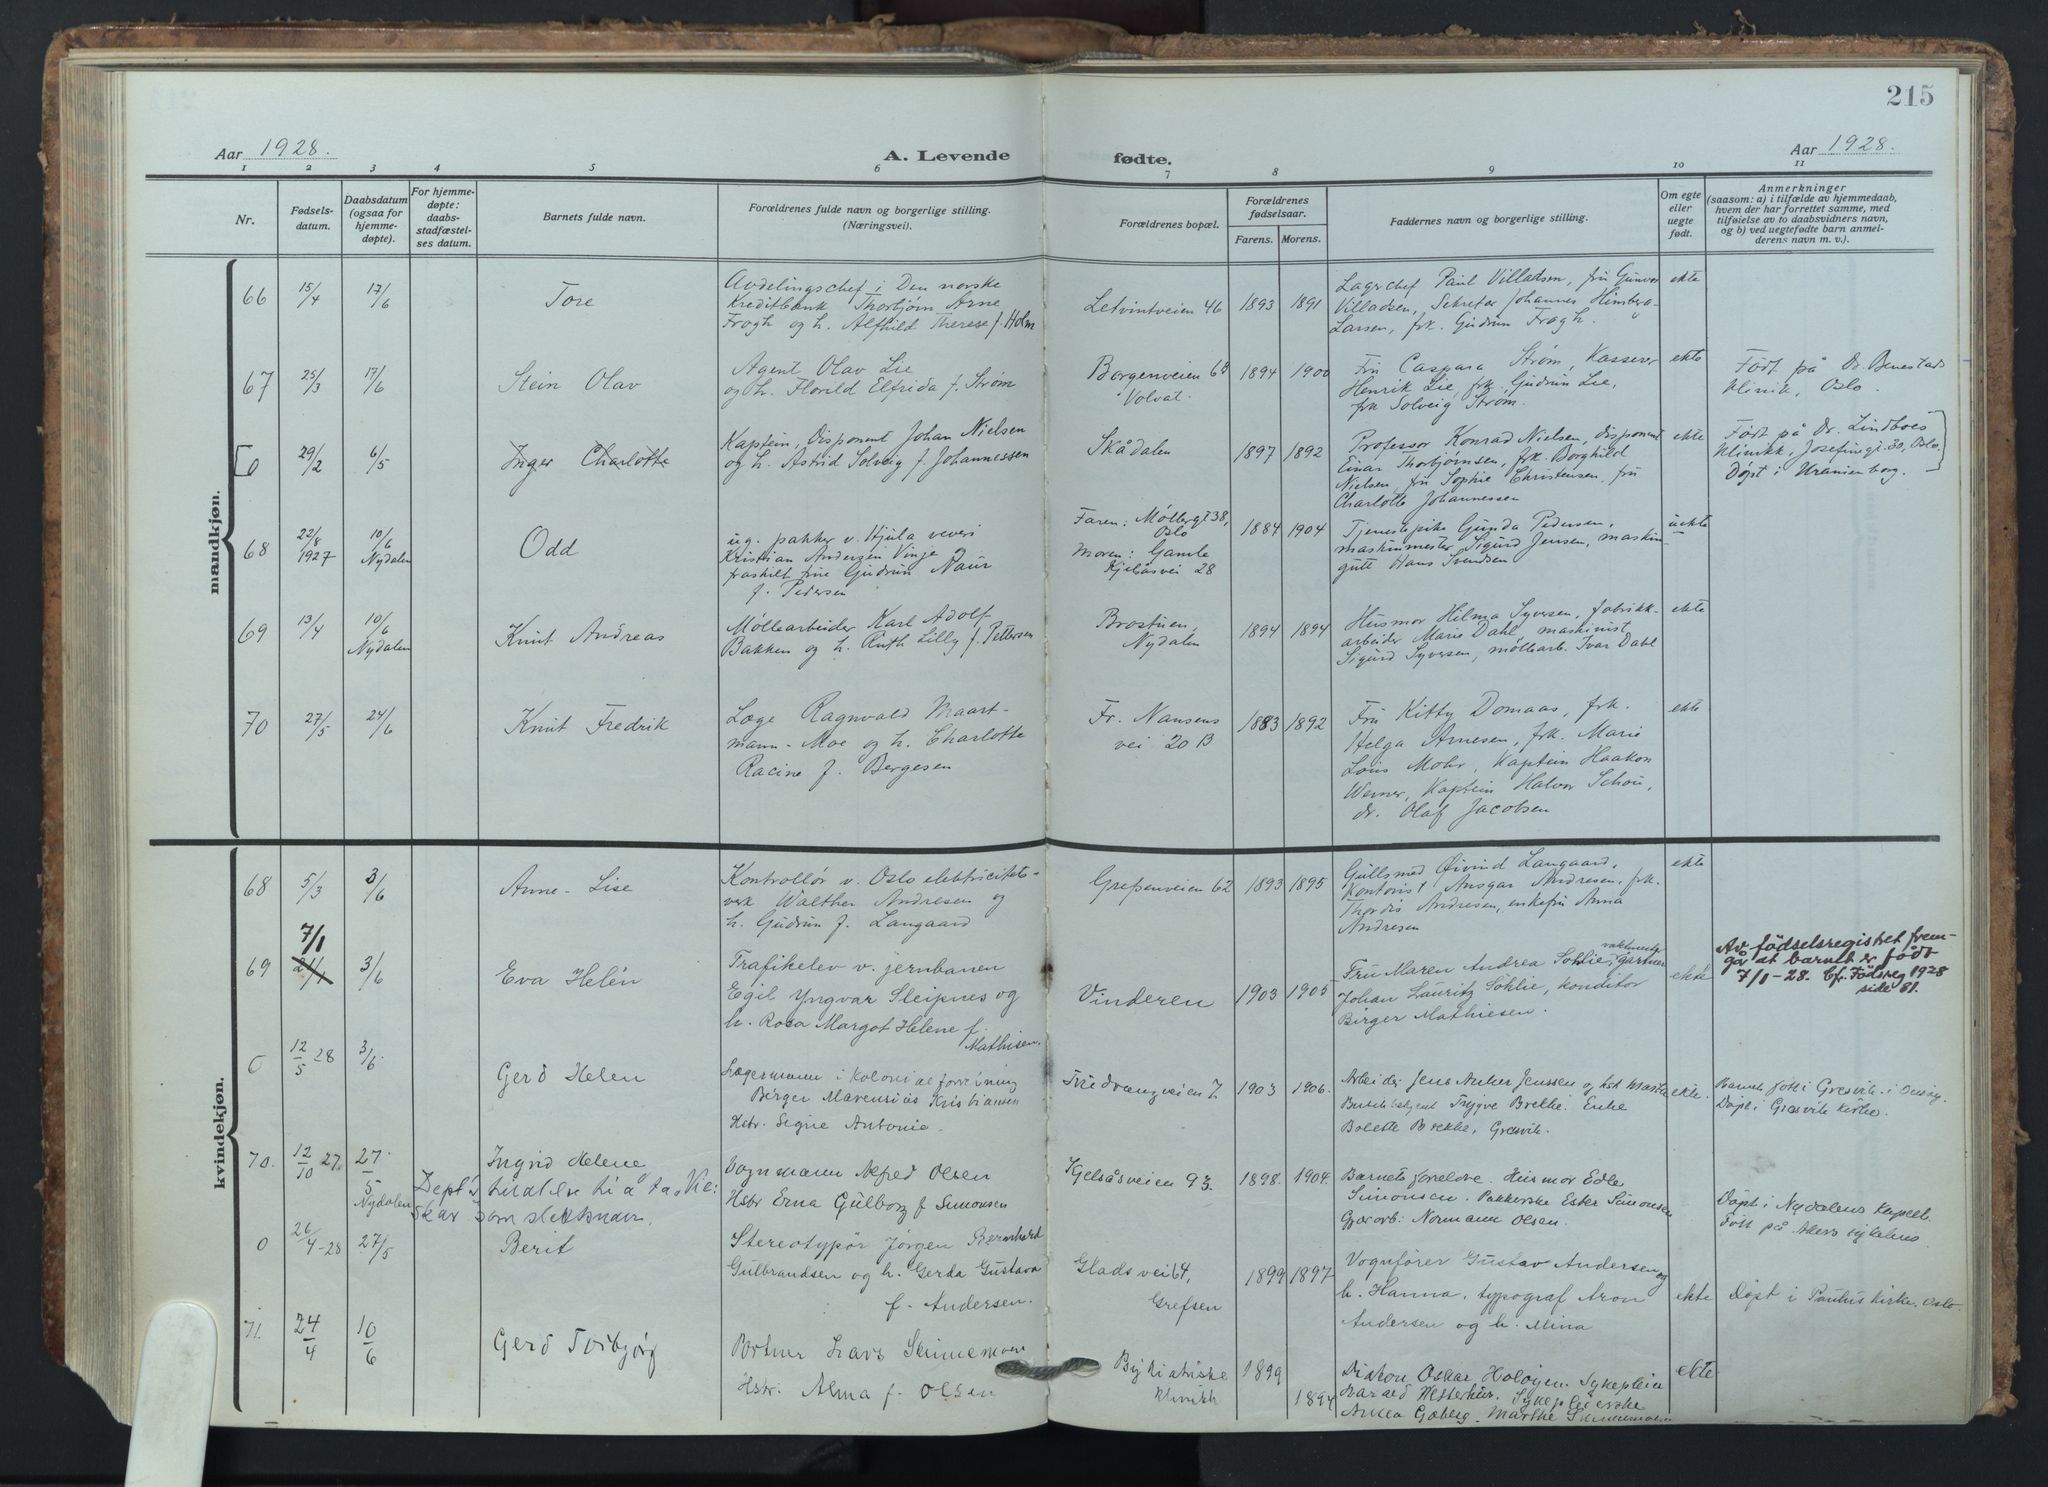 215
Aar 1928.
A. Levende fødte.
Aar 1928.
1 2 3 4 5 6 7 8 9 10 11
Nr.
Fødsels-
datum.
Daabsdatum
(ogsaa for
hjemme-
døpte).
For hjemme-
døpte:
daabs-
stadfæstel-
ses datum.
Barnets fulde navn.
Forældrenes fulde navn og borgerlige stilling.
(Næringsvei).
Forældrenes bopæl.
Forældrenes
fødselsaar.
Farens. Morens.
Faddernes navn og borgerlige stilling.
Om egte
eller
uegte
født.
Anmerkninger
(saasom: a) i tilfælde av hjemmedaab,
hvem der har forrettet samme, med
tilføielse av to daabsvidners navn,
og b) ved uegtefødte barn anmel-
derens navn m. v.).
mandkjøn.
66 15/4 17/6 Tore
Avdelingschef i Den norske
Kreditbank Thorbjørn Arne
Frogh og h. Alfhild Therese f. Holm
Letvintveien 46 1893 1891
Lagerchef Paul Villadsen, fru Gunvor
Villadsen, Sekretær Johannes Hinsberg-
Larsen, frk. Gudrun Frogh.
ekte
67 25/3 17/6 Stein Olav
Agent Olav Lie
og h. Florild Elfrida f. Strøm
Borgenveien 64
Volvat. 1894 1900
Fru Caspara Strøm, Kasserer
Henrik Lie, frk. Gudrun Lie,
frk Solveig Strøm.
ekte
Født på Dr. Benestads
klinik, Oslo.
[0 29/2 6/5 Inger Charlotte
Kaptein, Disponent Johan Nielsen
og h. Astrid Solveig f. Johannessen
Skådalen 1897 1892
Professor Konrad Nielsen, disponent
Einar Thorbjørnsen, frk. Borghild
Nielsen, fru Sophie Christensen, fru
Charlotte Johannessen
ekte
Født på Dr. Lindboes
klinikk, Josefinegt. 30, Oslo.
Døpt i Uranienborg.]
68 22/8 1927 10/6 Nydalen Odd
ug. pakker v. Hjula veveri
Kristian Andersen Vinje
fraskilt frue Gudrun Naur
f. Pedersen
Faren: Møllergt 38,
Oslo
Moren: Gamle
Kjelsåsvei 28
1884 1904
Tjenestepike Gunda Pedersen,
maskinmester Sigurd Jensen, maskin-
gutt Hans Svendsen
uekte
69 13/4 10/6 Nydalen Knut Andreas
Møllearbeider Karl Adolf
Bakken og h. Ruth Lilly f. Pettersen
Brostuen,
Nydalen 1894 1894
Husmor Hilma Syversen, fabrikk-
arbeider Marie Dahl, maskinist
Sigurd Syversen, møllearb. Ivar Dahl
ekte
70 27/5 24/6 Knut Fredrik
Læge Ragnvald Maart-
mann-Moe og h. Charlotte
Racine f. Bergesen
Fr. Nansens
vei 20 B 1883 1892
Fru Kitty Domaas, frk.
Helga Arnesen, frk. Marie
Lous Mohr, Kaptein Haakon
Werner, Kaptein Halvor Schou,
dr. Olaf Jacobsen
ekte
kvindekjøn.
68 5/3 3/6 Anne-Lise
Kontrollør v. Oslo elektricitets-
verk Walther Andresen og
h. Gudrun f. Langaard
Grefsenveien 62 1893 1895
Gullsmed Øivind Langaard,
Kontorist Ansgar Andresen, frk.
Thordis Andresen, enkefru Anna
Andresen
ekte
7/1
69 21/1 3/6 Eva Helén
Trafikelev v. jernbanen
Egil Yngvar Sleipnes og
h. Rosa Margot Helene f.
Mathisen.
Vinderen 1903 1905
Fru Maren Andrea Sohlie, gartner
Johan Lauritz Sohlie, konditor
Birger Mathiesen.
ekte
Av fødselsregistret frem-
går at barnet er født
7/1-28. Cfr. Fødsreg 1928
side 81.
0 12/5 28 3/6 Gerd Helen
Lagermann i Kolonialforretning
Birger Marensius Kristiansen
Hstr. Signe Antonie.
Tuedvangveien 7 1903 1906.
Arbeider Jens Anker Jenssen og hst Marta
Trygve Brekke. Enke
Bolette Brekke, Gresvik.
ekte.
Barnet født i Gresvik i Onsøy.
Døpt i Gresvik Kirke.
70. 12/10 27. 27/5 Nydalen Ingrid Helene
Døpt
som
Vognmann Alfred Olsen
Hstr Erna Gulborg f Simonsen
Kjelsåsveien 93. 1898. 1904.
Barnets foreldre. Husmor Edle
Simonsen. Pakkerske Ester Simonsen
Normann Olsen.
Døpt i Nydalens Kapell.
Født på Akers sykehus.
0 26/4-28 27/5 Berit
Stereotypør Jørgen Bernhard
Gulbrandsen og h. Gerda Gustava
f. Andersen.
Gladsvei 64,
Grefsen 1899 1897
Vognfører Gustav Andersen og
h. Hanna, typograf Aron
Andersen og h. Mina
ekte
Døpt i Paulus Kirke. Oslo
71. 24/4 10/6 Gerd Torbjørg
Portner Lars
Hstr. Alma f. Olsen
Psykiatriske
Klinikk 1899 1894
Diakon Oskar
Harald Westerhus. Sykepleierske
Marthe
ekte